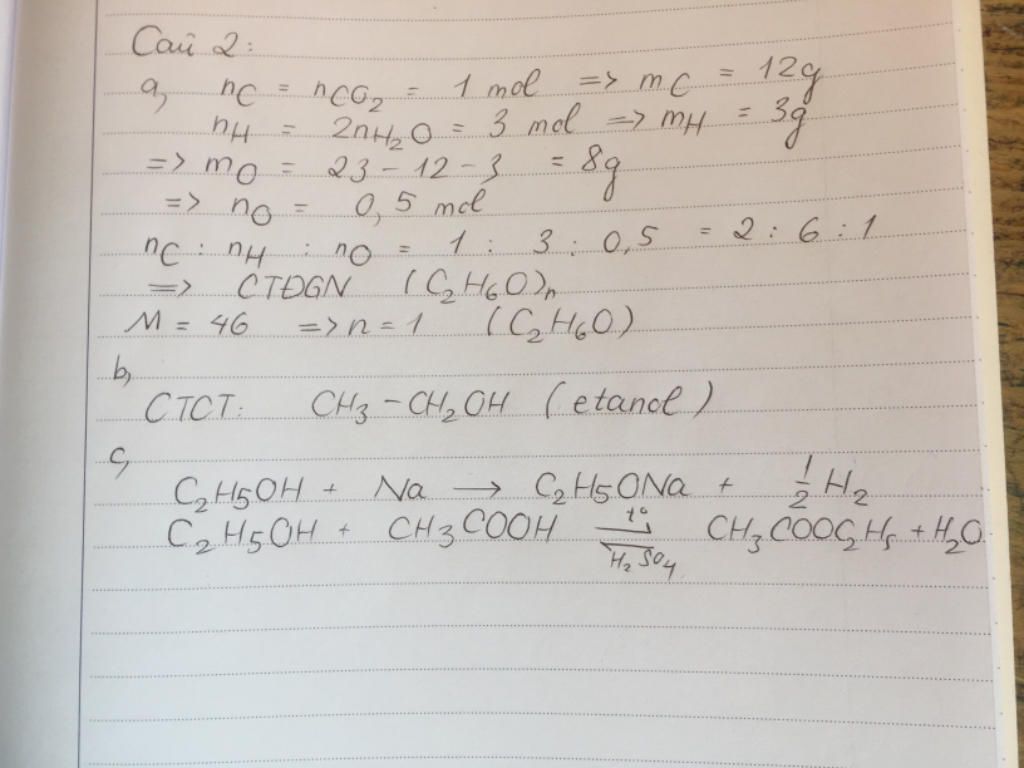 Câu 2:
a, nC = nCO₂ = 1 mol => mC = 12g
nH = 2nH₂O = 3 mol => mH = 3g
=> mO = 23 - 12 - 3 = 8g
=> nO = 0,5 mol
nC : nH : nO = 1 : 3 : 0,5 = 2 : 6 : 1
=> CTĐGN (C₂H₆O)ₙ
M = 46 => n = 1 (C₂H₆O)
b,
CTCT: CH₃ - CH₂OH (etanol)
c,
C₂H₅OH + Na → C₂H₅ONa + 1/2 H₂
C₂H₅OH + CH₃COOH ⇌ (t° / H₂SO₄) CH₃COOC₂H₅ + H₂O